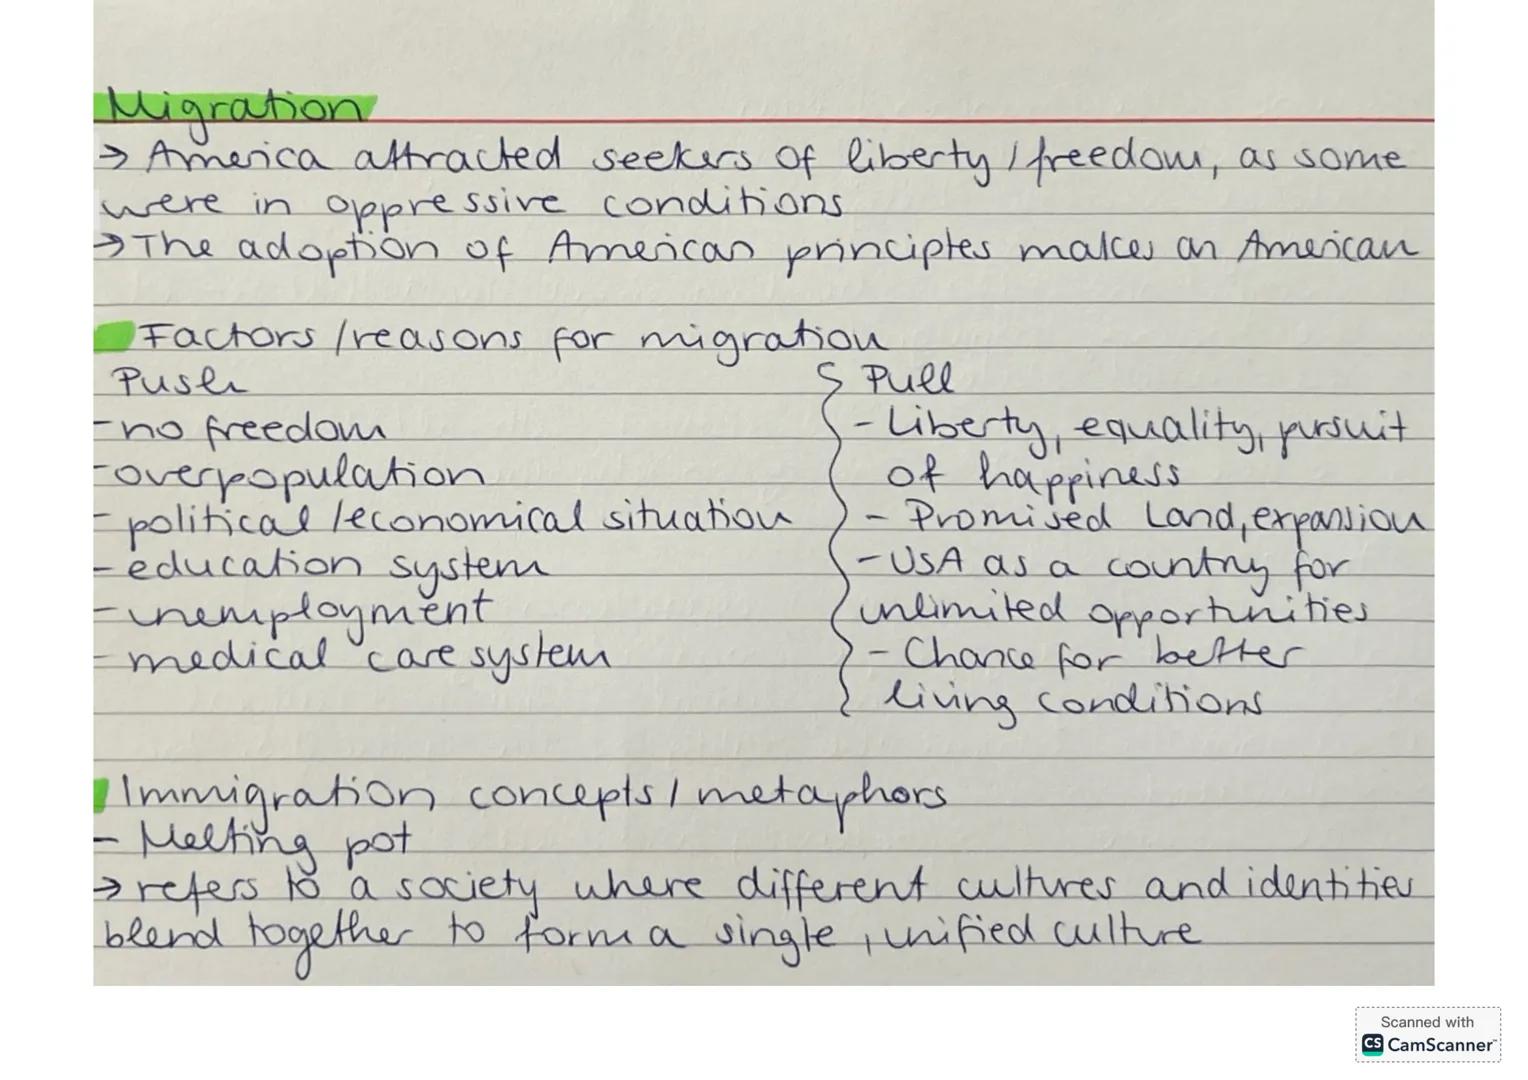 Migration
→ America attracted seekers of liberty / freedom, as some
were in oppressive conditions
→ The adoption of American principles makes an American
Factors / reasons for migration
Push
- no freedom
- overpopulation
- political / economical situation
- education system
- unemployment
- medical care system
Pull
- Liberty, equality, pursuit
of happiness
- Promised Land, expansion
- USA as a country for
unlimited opportunities
- Chance for better
living conditions
Immigration concepts / metaphors
- Melting pot
→ refers to a society where different cultures and identities
blend together to form a single, unified culture
Scanned with
CS CamScanner